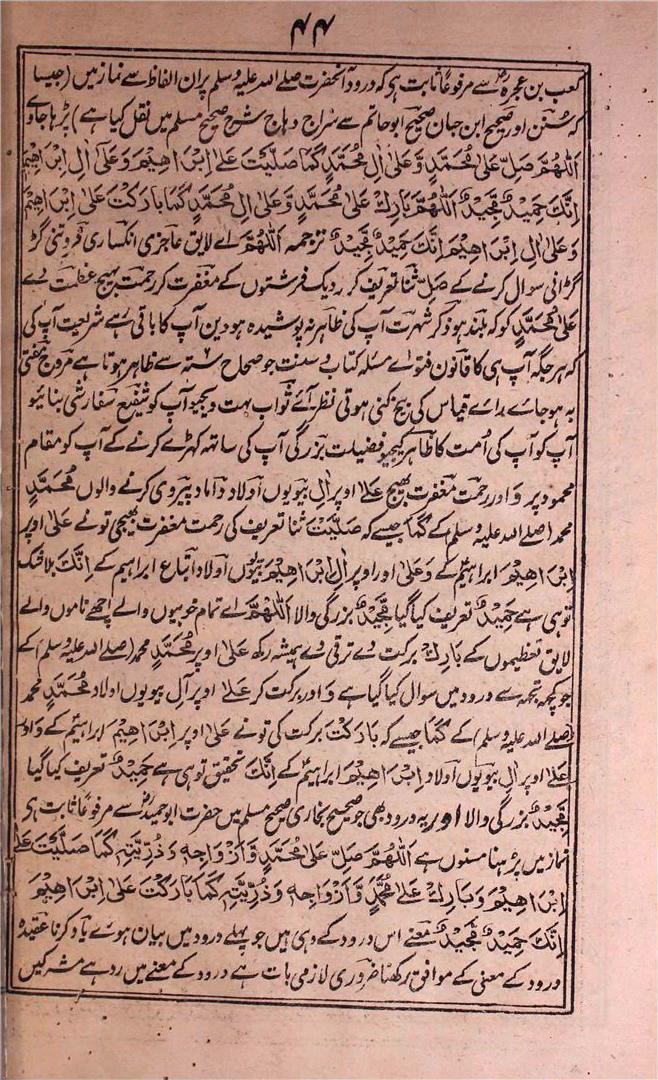 ۴۴
کعب بن عجرہؓ سے مرفوعاً ثابت ہی کہ درود آنحضرت صلے اللہ علیہ وسلم پر ان الفاظ سے نماز میں (جیسا
کہ سُنن اور صحیح ابن حبان صحیح ابو حاتم سے سراج وہاج شرح صحیح مسلم میں نقل کیا ہے) پڑہا جاوی
اَللّٰهُمَّ صَلِّ عَلٰى مُحَمَّدٍ وَّعَلٰى اٰلِ مُحَمَّدٍ كَمَا صَلَّيْتَ عَلٰے اِبْرَاهِيْمَ وَعَلٰى اٰلِ اِبْرَاهِيْمَ
اِنَّكَ حَمِيْدٌ مَّجِيْدٌ اَللّٰهُمَّ بَارِكْ عَلٰى مُحَمَّدٍ وَّعَلٰى اٰلِ مُحَمَّدٍ كَمَا بَارَكْتَ عَلٰى اِبْرَاهِيْمَ
وَعَلٰى اٰلِ اِبْرَاهِيْمَ اِنَّكَ حَمِيْدٌ مَّجِيْدٌ ترجمہ اَللّٰهُمَّ اے لایق عاجزی انکساری فروتنی گڑ
گڑانی سوال کرنے کے صَلِّ ثنا تعریف کر نزدیک فرشتوں کے مغفت کر رحمت بہیج عظمت دے
عَلٰى مُحَمَّدٍ کو کہ بلند ہو ذکر شہرت آپ کی ظاہر نہ پوشیدہ ہو دین آپ کا باقی رہے شریعت آپ کی
کہ ہر جگہ آپ ہی کا قانون فتوے مسئلہ کتاب و سنت جو صحاح ستہ سے ظاہر ہوتا ہے مروج مفتی
بہ ہو جاے راے قیاس کی بیخ کنی ہوتی نظر آئے ثواب بہت دیجیو آپ کو شفیع سفارشی بنائیو
آپ کو آپ کی اُمت کا ظاہر کیجیو فضیلت بزرگی آپ کی ساتہ کہڑے کرنے کے آپ کو مقام
محمود پر وَ اور رحمت مغفرت بھیج عَلٰے اوپر اٰلِ بیویوں اولاد داماد پیروی کرنے والوں مُحَمَّدٍ
محمد (صلے اللہ علیہ وسلم) کے كَمَا جیسے کہ صَلَّيْتَ ثنا تعریف کی رحمت مغفرت بھیجی تونے عَلٰى اوپر
اِبْرَاهِيْمَ ابراہیمؑ کے وَعَلٰى اور اوپر اٰلِ اِبْرَاهِيْمَ بیویوں اولاد اتباع ابراہیم کے اِنَّكَ بلا شک
تو ہی ہے حَمِيْدٌ تعریف کیا گیا مَّجِيْدٌ بزرگی والا اَللّٰهُمَّ اے تمام خوبیوں والے اچھے ناموں والے
لایق تعظیموں کے بَارِكْ برکت دے ترقی دے ہمیشہ رکھ عَلٰى اوپر مُحَمَّدٍ محمد (صلے اللہ علیہ وسلم) کے
جو کچہ تجہہ سے درود میں سوال کیا گیا ہے وَ اور برکت کر عَلٰے اوپر اٰلِ بیویوں اولاد مُحَمَّدٍ محمد
(صلے اللہ علیہ وسلم) کے كَمَا جیسے کہ بَارَكْتَ برکت کی تونے عَلٰى اوپر اِبْرَاهِيْمَ ابراہیمؑ کے وَ اور
عَلٰے اوپر اٰلِ بیویوں اولاد اِبْرَاهِيْمَ ابراہیمؑ کے اِنَّكَ تحقیق تو ہی ہے حَمِيْدٌ تعریف کیا گیا
مَّجِيْدٌ بزرگی والا اور یہ درود بھی جو صحیح بخاری صحیح مسلم میں حضرت ابو حمیدؓ سے مرفوعاً ثابت ہی
نماز میں پڑہنا مسنون ہے اَللّٰهُمَّ صَلِّ عَلٰى مُحَمَّدٍ وَّاَزْوَاجِهٖ وَذُرِّيَّتِهٖ كَمَا صَلَّيْتَ عَلٰے
اِبْرَاهِيْمَ وَبَارِكْ عَلٰے مُحَمَّدٍ وَّاَزْوَاجِهٖ وَذُرِّيَّتِهٖ كَمَا بَارَكْتَ عَلٰى اِبْرَاهِيْمَ
اِنَّكَ حَمِيْدٌ مَّجِيْدٌ معنے اس درود کے وہی ہیں جو پہلے درود میں بیان ہوے یاد کرنا عقیدہ
درود کے معنی کے موافق رکھنا ضروری لازمی بات ہے درود کے معنے میں رد ہے مشرکین